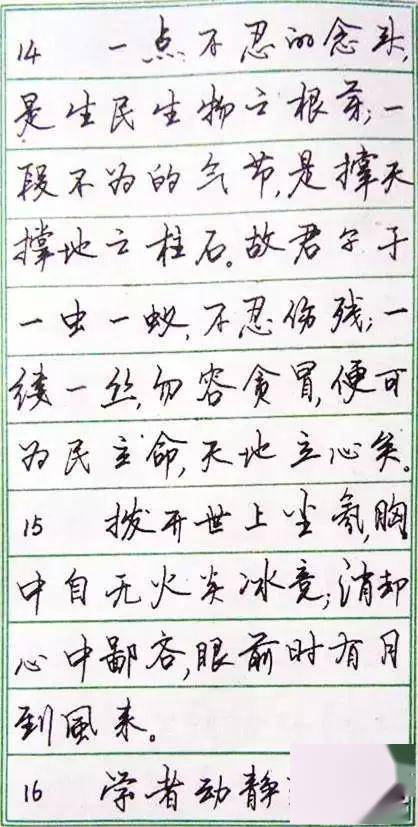 14 一点不忍的念头,
是生民生物之根芽;一
段不为的气节,是撑天
撑地之柱石。故君子于
一虫一蚁,不忍伤残;一
缕一丝,勿容贪冒,便可
为民立命,天地立心矣。
15 拨开世上尘氛,胸
中自无火炎冰竞;消却
心中鄙吝,眼前时有月
到風来。
16 学者动静